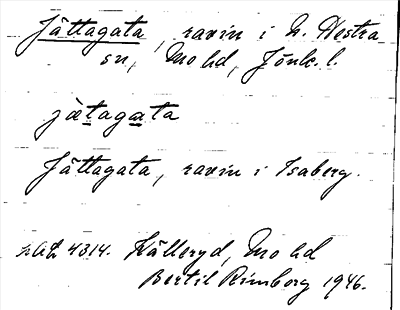 Jättagata, ravin i N. Hestra
sn, Mo hd, Jönk. l.
jätagata
Jättagata, ravin i Isaberg.
4314. Källeryd, Mo hd
Bertil Rimborg 1946.